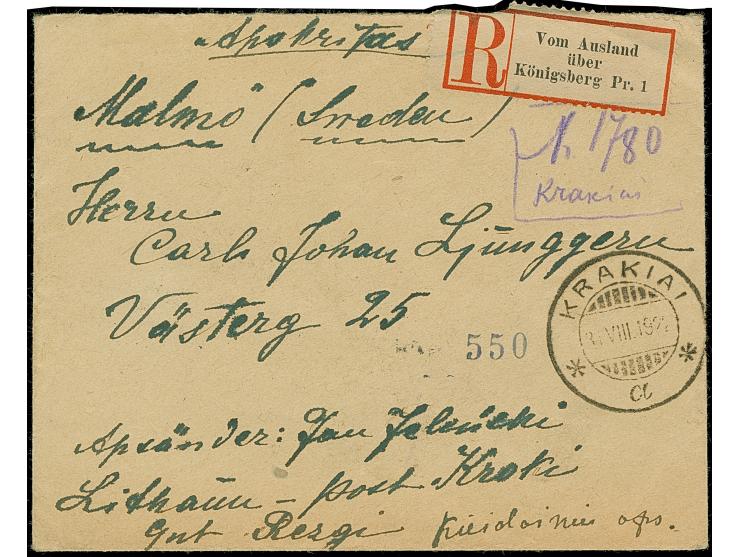 Apokritas
R
Vom Ausland
über
Königsberg Pr. 1
Malmö (Sweden)
N. 1780
Krakiai
Herrn
Carl Johan Ljunggern
Västerg 25
KRAKIAI
VIII.192
a
550
Apsänder: Jan
Lithaun - post Kroki
Gut Rezgi
aps.